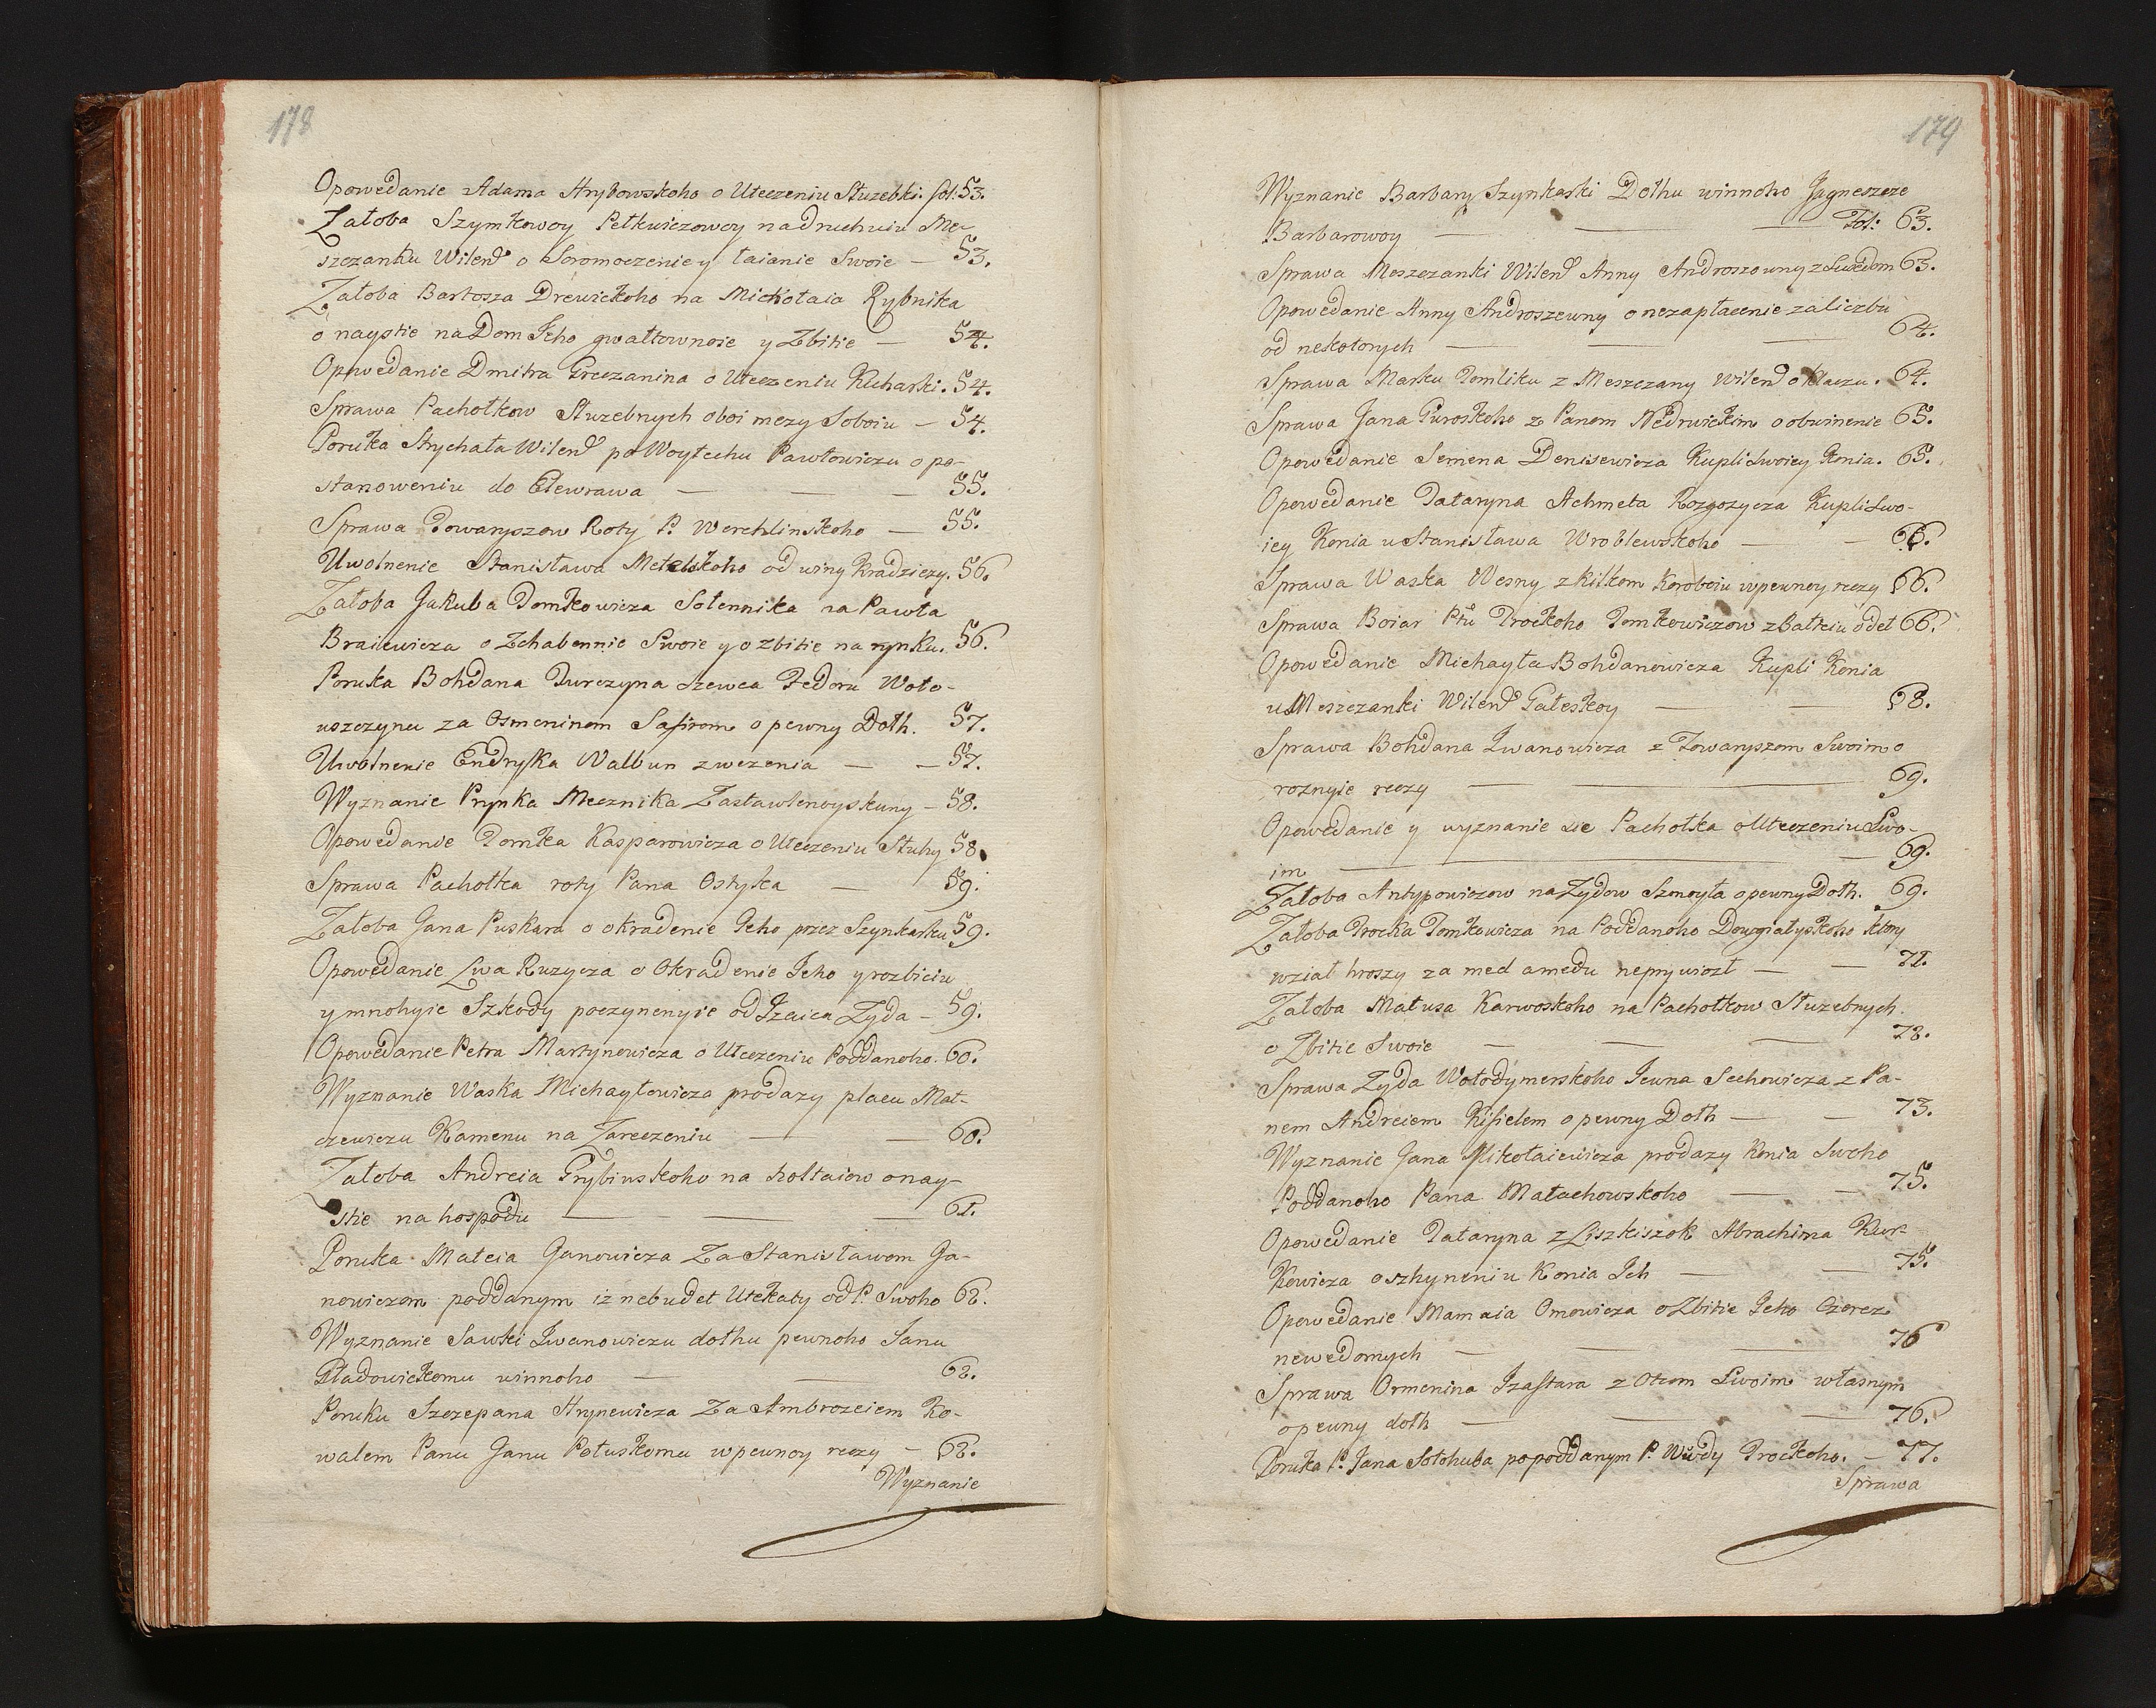 178
Opowedanie Adama Hrybowskoho o Uteczeniu Służebki. fol: 53.
Załoba Szymkowoy Petkewiczowoy na druhuiu Me-
szczanku Wilend o Soromoczenie y łaianie Swoie — 53.
Załoba Bartosza Drewickoho na Mickołaia Rybnika
o nayście na Dom Jeho gwałtownoie y Zbitie — 54.
Opowedanie Dmitra Greczanina o Uteczeniu Kucharki. 54.
Sprawa Pachołkow Służebnych oboi mezy Soboiu — 54.
Poruka Strychała Wilend po Woytechu Pawłowiczu o po-
stanoweniu do Elewrawa — — — 55.
Sprawa Towaryszow Roty P. Werchlinskoho — 55.
Uwolnenie Stanisława Metelskoho od winy Kradziezy. 56.
Załoba Jakuba Tomkowicza Solennika na Pawła
Brailewicza o Zchabennie Swoie y o zbitie na rynku. 56.
Poruka Bohdana Turczyna Szewca Fedoru Woło-
uszczynu za Osmeninom Safirom o pewny Dołh. 57.
Uwolnenie Endryka Walbun zwezenia — — 57.
Wyznanie Prynka Mecznika Zastawlenoy skuny — 58.
Opowedanie Tomka Kasparowicza o Uteczeniu Słuhy 58.
Sprawa Pachołka roty Pana Ostyka — 59.
Załoba Jana Puskara o okradenie Jeho przez Szynkarku 59.
Opowedanie Lwa Ruzycza o Okradenie Jeho y rozbiciu
y mnohyie Szkody poczynenyie od Izaica Zyda — 59.
Opowedanie Petra Martynowicza o Uteczeniu Poddanoho. 60.
Wyznanie Waska Michayłowicza prodazy placu Mat-
czewiczu Kamenu na Zareczeniu — — 60.
Załoba Andreia Grybinskoho na hołtaiow o nay-
stie na hospodu — — — 61.
Poruka Mateia Janowicza Za Stanisławom Ja-
nowiczom poddanym iz nebudet Utekaty od P. Swoho 62.
Wyznanie Sawki Iwanowiczu dołhu pewnoho Janu
Hładowickomu winnoho — — 62.
Poruku Szczepana Hrynewicza Za Ambrozeiem Ko-
walem Panu Janu Połuskomu w pewnoy reczy — 62.
Wyznanie
179
Wyznanie Barbary Szynkarki Dołhu winnoho Jagneszcze
Barbarowoy — — — Fol: 63.
Sprawa Meszczanki Wilend Anny Androszowny z Susedom 63.
Opowedanie Anny Androszewny o nezapłacenie za liczbu
od nekotorych — — — 64.
Sprawa Marku Tomliku z Meszczany Wilend o Klaczu. 64.
Sprawa Jana Guroskoho z Panom Nedrwickim o obwinenie 65.
Opowedanie Semena Denisewicza Kupli Swoiey Konia. 65.
Opowedanie Tataryna Achmeta Rozgozycza Kupli Swo-
iey Konia u Stanisława Wroblewskoho — — 66.
Sprawa Waska Wesny z Kilkom Koroboiu w pewnoy reczy 66.
Sprawa Boiar Ptu Trockoho Tomkowiczow z Batkiu odet 66.
Opowedanie Michayła Bohdanowicza Kupli Konia
u Meszczanki Wilend Gałeskoy — — 68.
Sprawa Bohdana Iwanowicza z Towaryszom Swoim o
roznyie reczy — — 69.
Opowedanie y wyznanie sie Pachołka o Uteczeniu Swo-
im — — — 69.
Załoba Antypowiczow na Zydow Szmoyła o pewny Dołh. 69.
Załoba Trocka Tomkowicza na Poddanoho Dowgiałyskoho ktory
wział hroszy za med a medu neprywiozł — — 72.
Załoba Matusa Karwoskoho na Pachołkow Służebnych
o Zbitie Swoie — — — 73.
Sprawa Zyda Wołodymerskoho Jewna Sechowicza z Pa-
nem Andreiem Kisielem o pewny Dołh — — 73.
Wyznanie Jana Mikołaiewicza prodazy Konia Swoho
Poddanoho Pana Małachowskoho — — 75.
Opowedanie Tataryna z Liszkiszok Abrachima Kur-
kowicza o szhyneniu Konia Ich — — 75.
Opowedanie Mamaia Omowicza o Zbitie Jeho Czerez
newedomych — — — 76
Sprawa Ormenina Izastara z Otcom Swoim własnym
o pewny dołh — — — 76.
Poruka P. Jana Sołohuba po poddanym P. Wwdy Trockoho. — 77.
Sprawa